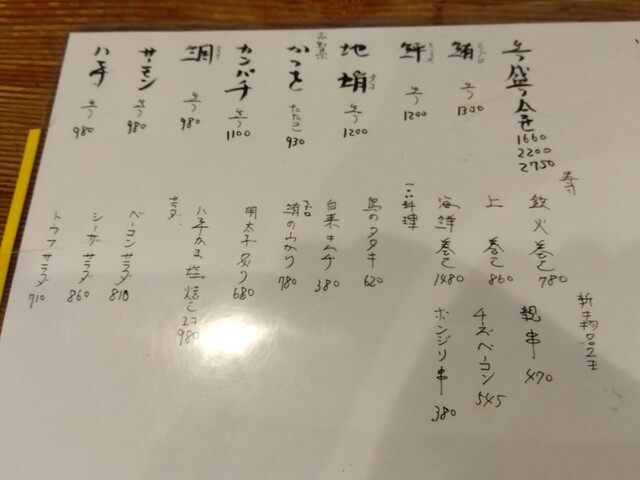 造り盛り合せ
1660
2200
2750
鮪 造り 1300
造り 1200
地蛸 タコ 造り 1200
かつを たたき 930
カンパチ 造り 1100
鯛 造り 980
サーモン 造り 980
ハモ 造り 980
寿司
鉄火巻き 780
上巻き 860
海鮮巻き 1480
一品料理
鳥のタタキ 620
白菜キムチ 380
鮪の山かけ 780
明太子炙り 680
ハモかま塩焼き 2コ 980
サラダ
ベーコンサラダ 810
シーザーサラダ 860
トウフサラダ 710
親串 470
チーズベーコン 545
ボンジリ串 380